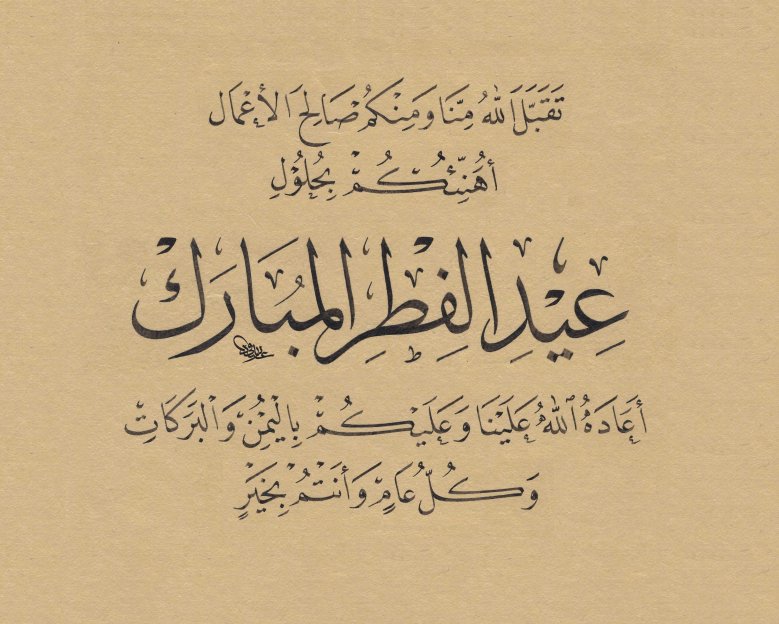 تَقَبَّلَ اللهُ مِنَّا وَمِنْكُمْ صَالِحَ الأَعْمَال
أُهَنِّئُكُمْ بِحُلُوْلِ
عِيْدِ الفِطْرِ المُبَارَكْ
أَعَادَهُ اللهُ عَلَيْنَا وَعَلَيْكُمْ بِالْيُمْنِ وَالْبَرَكَاتِ
وَكُلُّ عَامٍ وَأَنْتُمْ بِخَيْرٍ